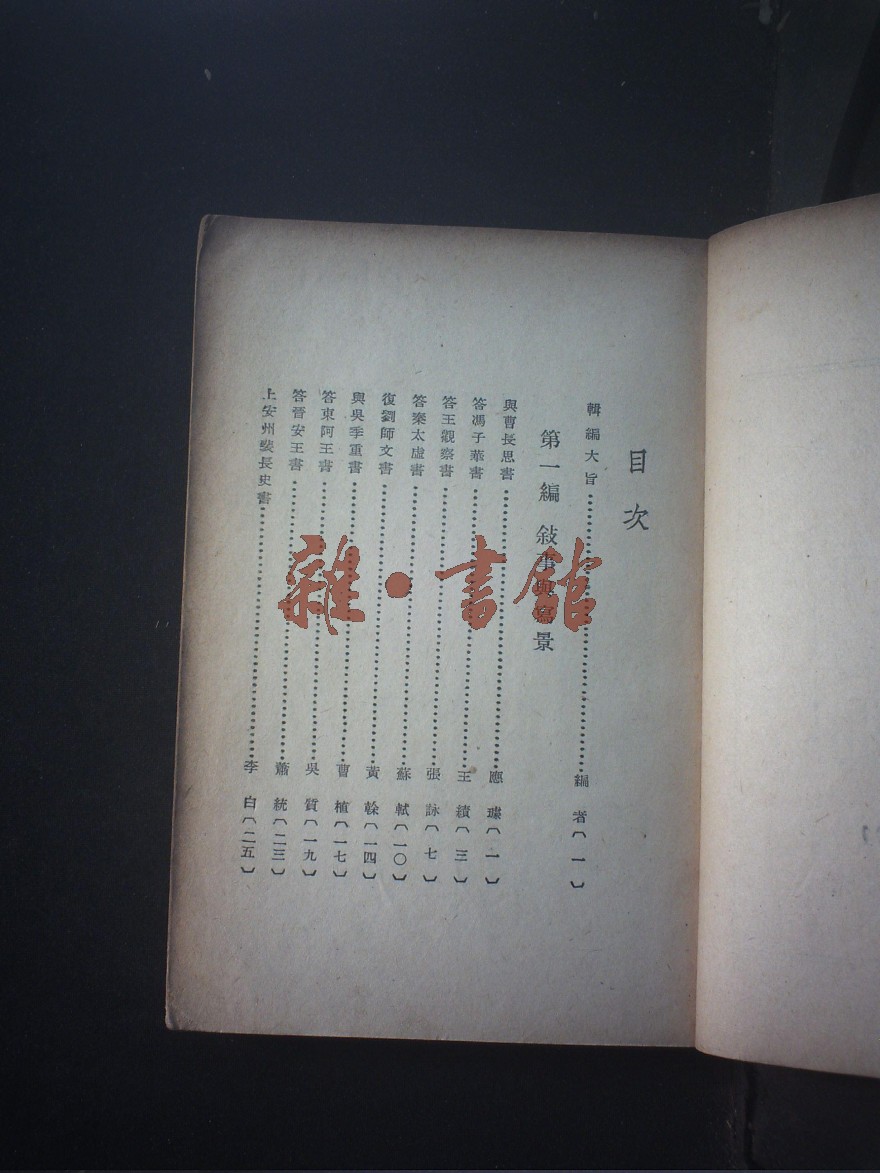 目次
輯編大旨……編者〔一〕
第一編 敍事與寫景
與曹長思書……應璩〔一〕
答馮子華書……王績〔三〕
答王觀察書……張詠〔七〕
答秦太虛書……蘇軾〔一〇〕
復劉師文書……黃榦〔一四〕
與吳季重書……曹植〔一七〕
答東阿王書……吳質〔一九〕
答晉安王書……蕭統〔二三〕
上安州裴長史書……李白〔二五〕
雜·書館